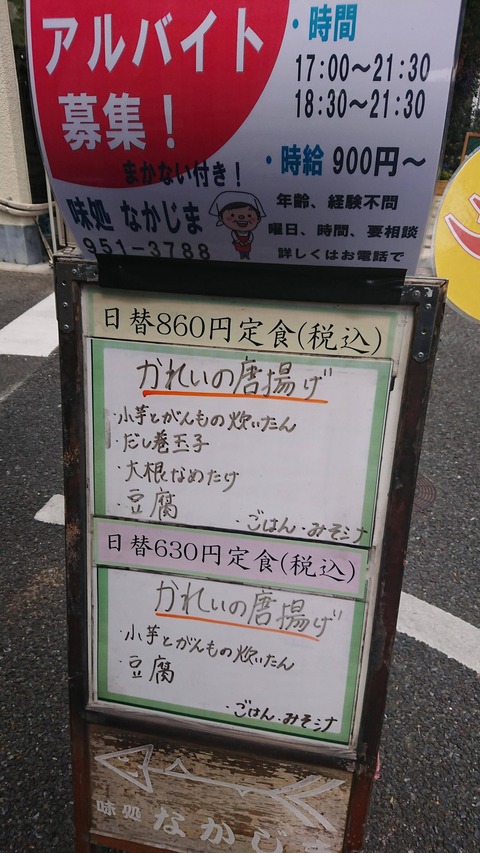 アルバイト
募集！
まかない付き！
味処 なかじま
951-3788
・時間
17:00～21:30
18:30～21:30
・時給 900円～
年齢、経験不問
曜日、時間、要相談
詳しくはお電話で
日替860円定食(税込)
かれいの唐揚げ
・小芋とがんもの炊いたん
・だし巻玉子
・大根なめたけ
・豆腐
・ごはん・みそ汁
日替630円定食(税込)
かれいの唐揚げ
・小芋とがんもの炊いたん
・豆腐
・ごはん・みそ汁
味処 なかじ